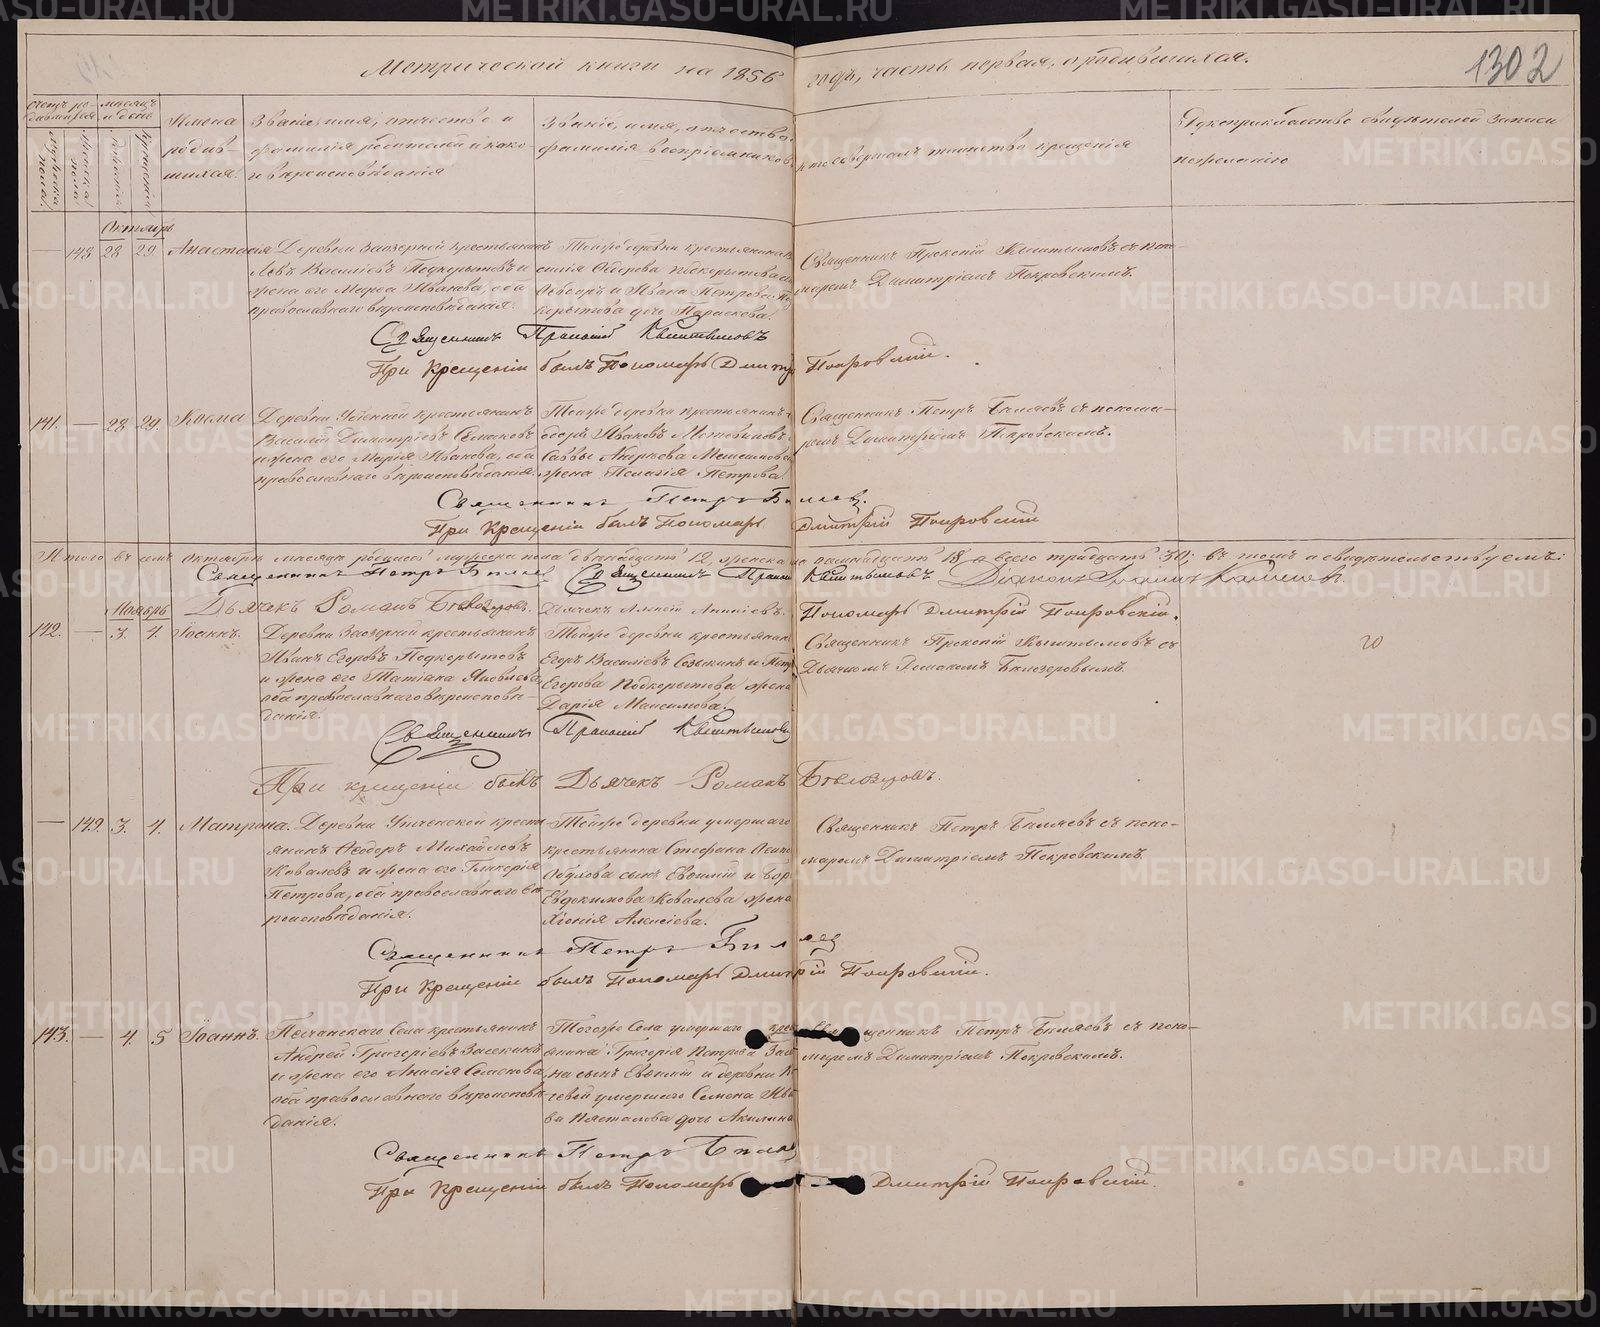 Метрической книги на 1856 годъ, часть первая, о родившихся.
1302
Счетъ родившихся
Мужеска пола.
Женска пола.
Месяцъ и день
рожденія
крещенія
Имена родившихся.
Званіе, имя, отчество и фамилія родителей и какого вероисповѣданія
Званіе, имя, отчество, фамилія воспріемниковъ
кто совершалъ таинство крещенія
Рукоприкладство свидѣтелей записи по желанію
Октябрь
— 148 28 29. Анастасія
Деревни Заозерной крестьянинъ
Левъ Василіевъ Подкорытовъ и
жена его Марѳа Иванова, оба
православнаго вѣроисповѣданія.
Тойже деревни крестьянина Ва
силія Ѳедорова Подкорытова сынъ
Ѳедоръ и Ивана Петрова По
корытова дочь Параскева.
Священникъ Прокопій Кыштымовъ съ поно-
маремъ Димитріемъ Покровскимъ.
Священникъ Прокопій Кыштымовъ
При Крещеніи былъ Пономарь Дмитрій Покровскій.
141. — 28 29. Косма
Деревни крестьянинъ
Василій Димитріевъ Семаковъ
и жена его Марія Иванова, оба
православнаго вѣроисповѣданія.
Тойже деревни крестьянинъ
Саввы
жена Пелагія Петрова.
Священникъ Петръ Бѣляевъ съ понома-
ремъ Димитріемъ Покровскимъ.
Священникъ Петръ Бѣляевъ.
При Крещеніи былъ Пономарь Дмитрій Покровскій
Итого въ семъ октябрѣ месяцѣ родилось мужеска пола двѣнадцать 12, женска восемнадцать 18, а всего тридцать 30; въ томъ и свидѣтельствуемъ:
Священникъ Петръ Бѣляевъ Священникъ Прокопій Кыштымовъ Діаконъ
Ноябрь
Дьячекъ Романъ Бѣлозеровъ. Дьячекъ Пономарь Дмитрій Покровскій.
142. — 3. 4. Іоаннъ.
Деревни Заозерной крестьянинъ
Иванъ Егоровъ Подкорытовъ
и жена его Татіана Яковлева,
оба православнаго вѣроисповѣ-
данія.
Тойже деревни крестьянинъ
Егоръ Василіевъ Созыкинъ и Петра
Егорова Подкорытова жена
Дарія Максимова.
Священникъ Прокопій Кыштымовъ съ
Дьячкомъ Романомъ Бѣлозеровымъ.
20
Священникъ Прокопій Кыштымовъ
При крещеніи былъ Дьячекъ Романъ Бѣлозеровъ.
— 149. 3. 4. Матрона.
Деревни крестья
янинъ Ѳеодоръ Михайловъ
Ковалевъ и жена его Гликерія
Петрова, оба православнаго вѣ
роисповѣданія.
Тойже деревни умершаго
крестьянина Стефана
Обухова сынъ Евѳимій и
Евдокимова Ковалева жена
Хіонія Алексіева.
Священникъ Петръ Бѣляевъ съ поно-
маремъ Димитріемъ Покровскимъ.
Священникъ Петръ Бѣляев
При Крещеніи былъ Пономарь Дмитрій Покровскій.
143. — 4. 5 Іоаннъ.
Песчанскаго Села крестьянинъ
Андрей Григоріевъ Засекинъ
и жена его Анисія Семенова,
оба православнаго вѣроисповѣ
данія.
Тогоже Села умершаго крес
янина Григорія Петрова Засѣ
на сынъ Евѳимій и деревни
умершаго Семена
дочь Акилина
Священникъ Петръ Бѣляевъ съ поно-
маремъ Димитріемъ Покровскимъ.
Священникъ Петръ Бѣляев
При Крещеніи былъ Пономарь Дмитрій Покровскій.
METRIKI.GASO-URAL.RU